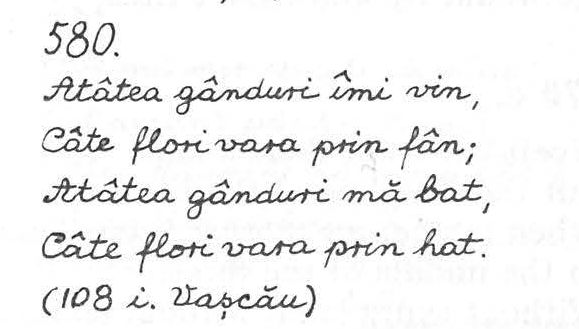 580.
Atâtea gânduri îmi vin,
Câte flori vara prin fân;
Atâtea gânduri mă bat,
Câte flori vara prin hat.
(108 i. Vașcău)